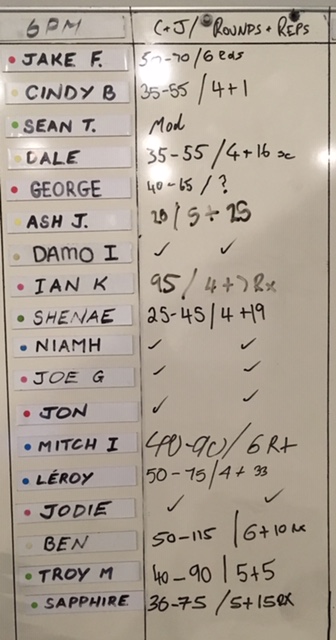 6PM C+J/ ROUNDS + REPS
JAKE F. 50-70/6 Rds
CINDY B 35-55 / 4+1
SEAN T. Mod
DALE 35-55 / 4+16 sc
GEORGE 40-65 / ?
ASH J. 20 / 5 + 25
DAMO I ✓ ✓
IAN K 95 / 4+7 Rx
SHENAE 25-45 / 4+19
NIAMH ✓ ✓
JOE G ✓
JON ✓ ✓
MITCH I 40-90 / 6 RX
LÉROY 50-75 / 4+33
JODIE ✓ ✓
BEN 50-115 | 6+10
TROY M 40-90 | 5+5
SAPPHIRE 36-75 / 5+15 RX